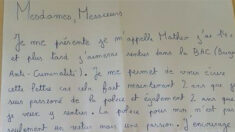 Mesdames, Messieurs
Je me présente je m'appelle Mathéo j'ai
et plus tard j'aimerais rentrer dans la BAC (
Anti-Criminalité). Je me permet de vous écrire
cette lettre car cela fait maintenant 2 ans que je
suis passioné de la police et également 2 ans que
je veux y rentrer. La police pour moi n'est pas
seulement un métier mais une passion. J'encourage